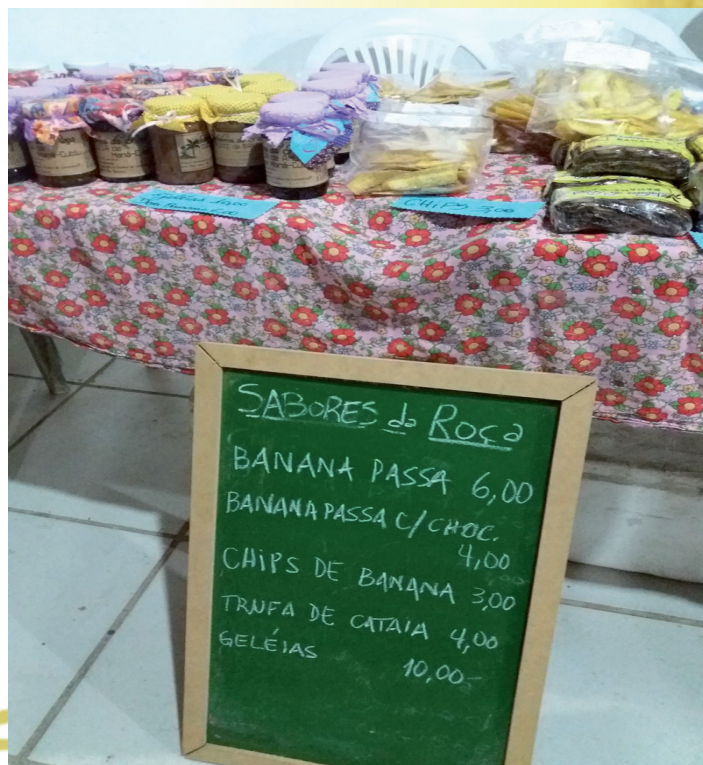 Geléias 10,00
CHIPS 3,00
SABORES da Roça
BANANA PASSA 6,00
BANANA PASSA C/CHOC.
4,00
CHIPS DE BANANA 3,00
TRUFA DE CATAIA 4,00
GELÉIAS 10,00